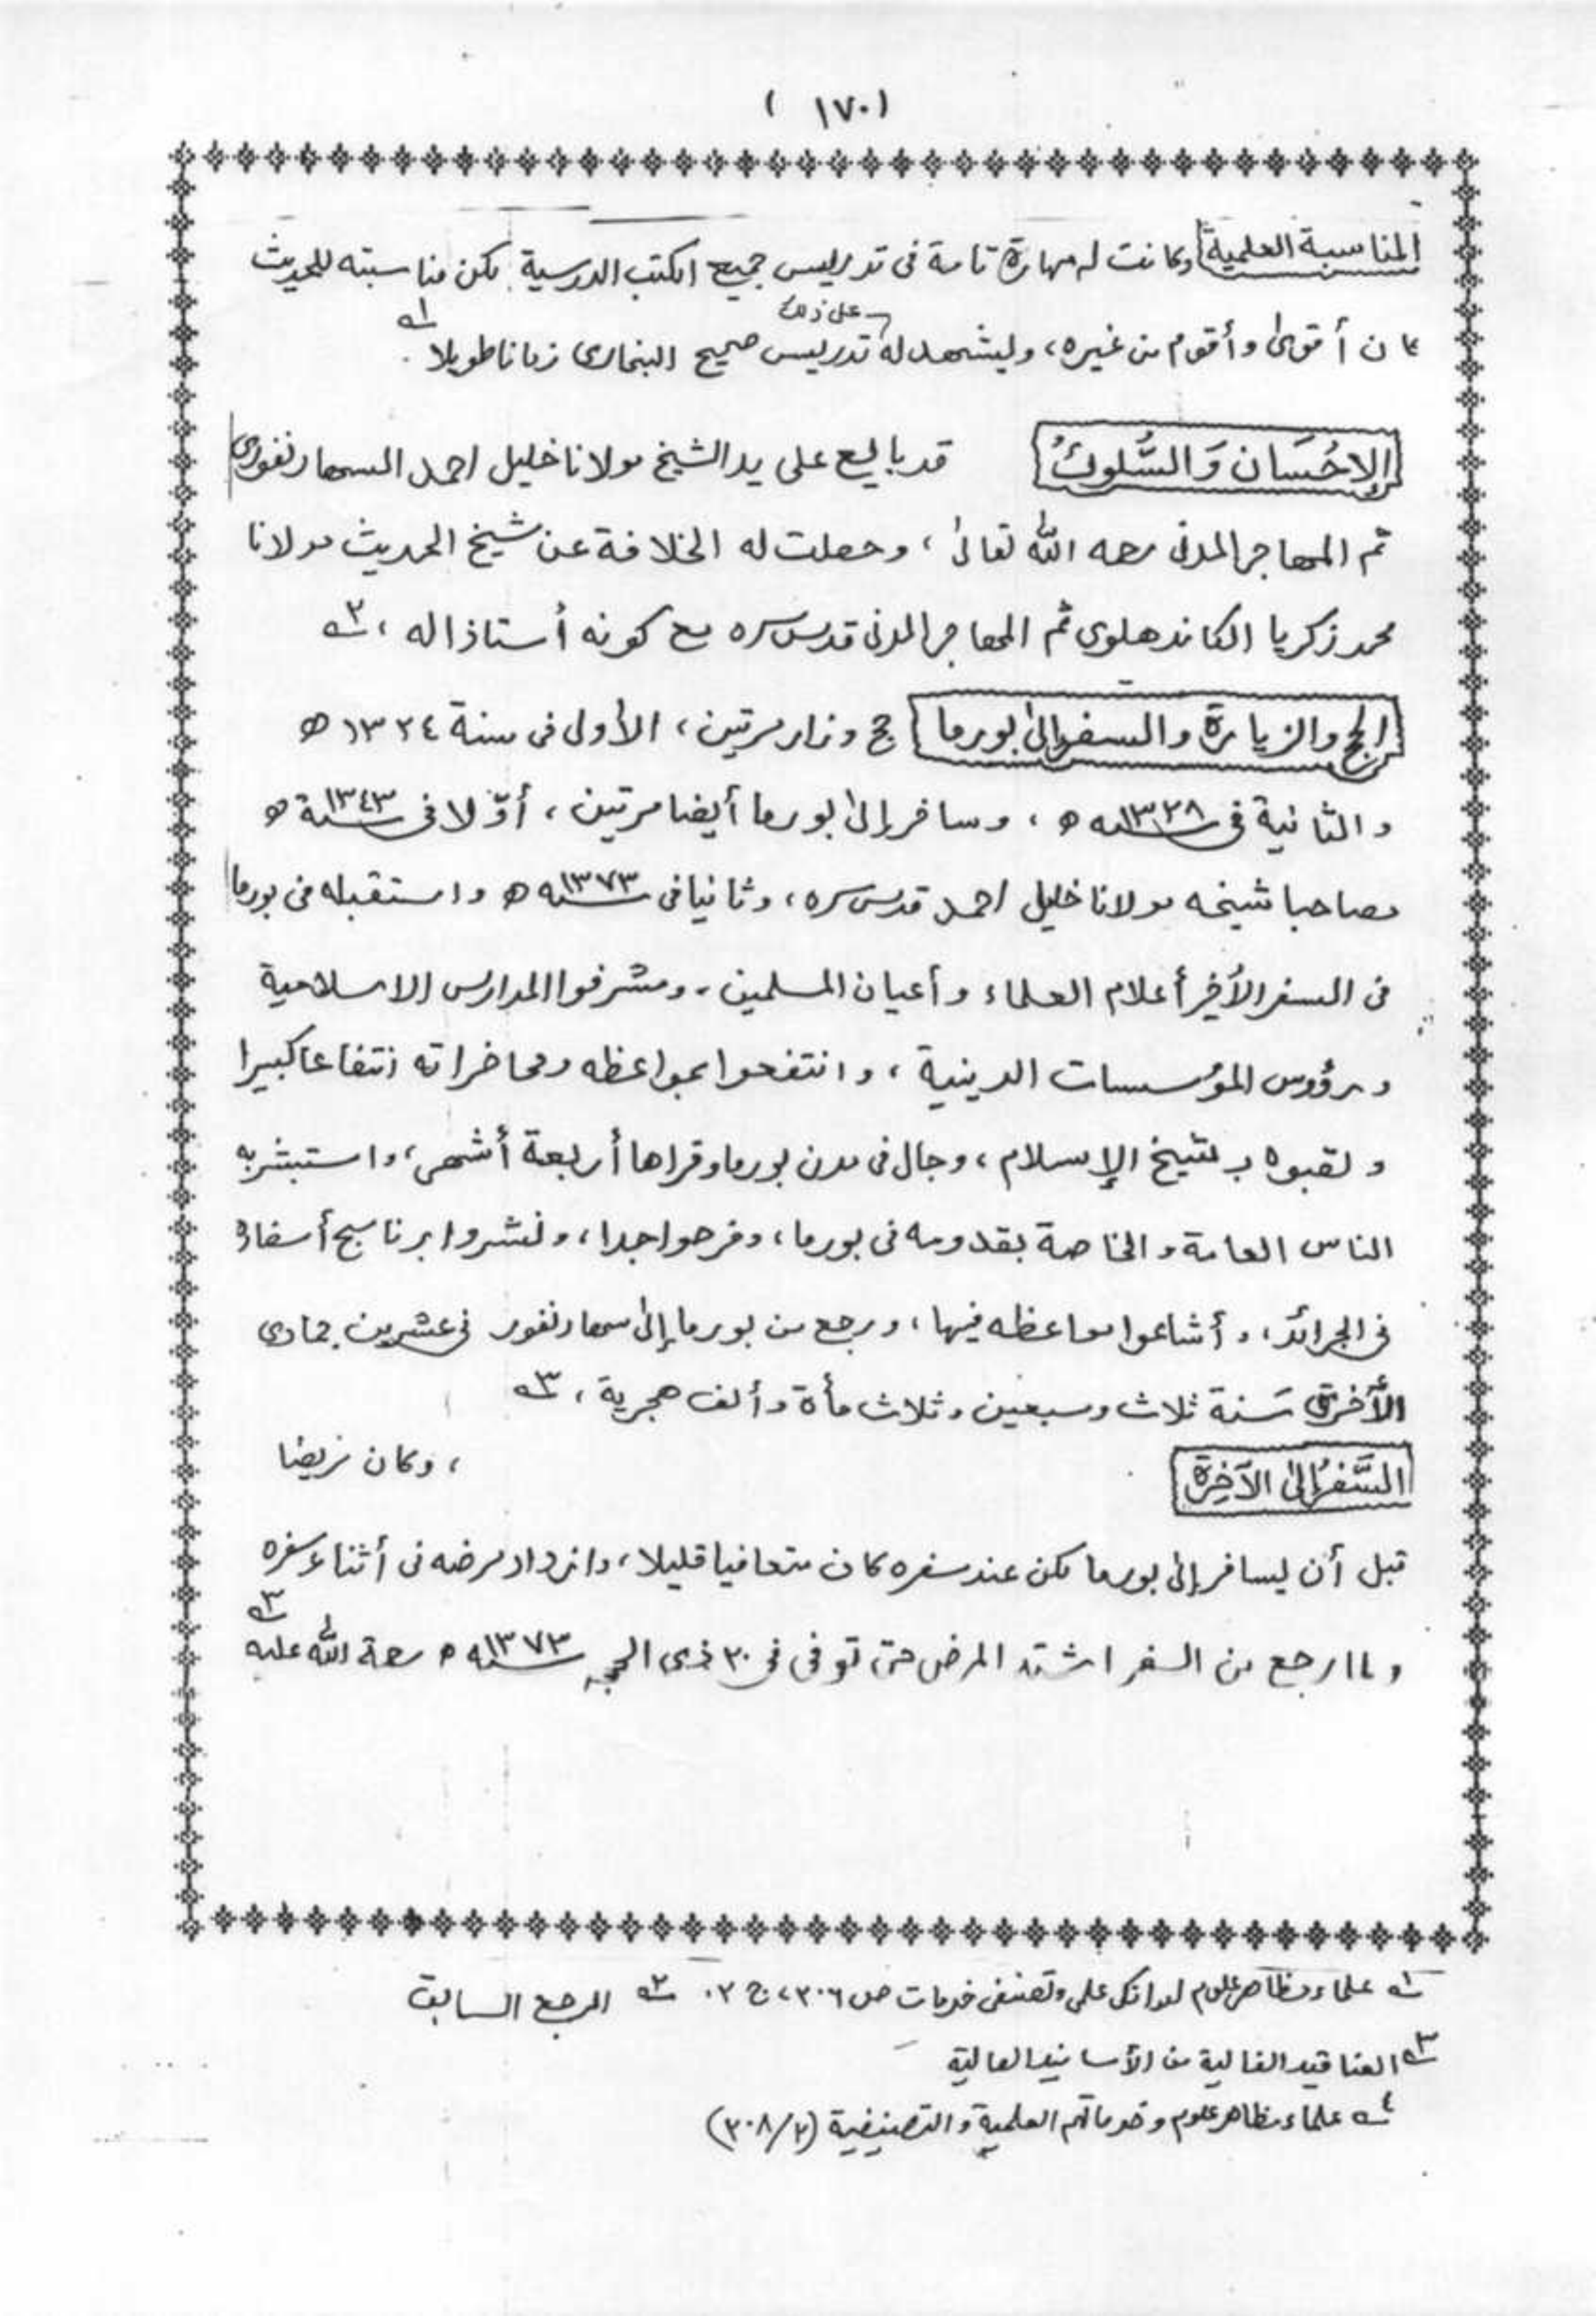 ( ١٧٠ )
المناسبة العلمية وكانت له مهارة تامة فى تدريس جميع الكتب الدرسية لكن مناسبته للحديث
على ذلك
كان أقوى وأقوم من غيره، وليشهد له تدريس صحيح البخارى زمانا طويلا ١ه
الإحْسَان وَالسُّلوكُ قد بايع على يد الشيخ مولانا خليل احمد السهارنفورى
ثم المهاجر المدنى رحمه الله تعالىٰ، وحصلت له الخلافة عن شيخ الحديث مولانا
محمد زكريا الكاندهلوى ثم المهاجر المدنى قدس سره مع كونه أستاذا له، ٢ه
الحج والزيارة والسفر إلىٰ بورما حج وزار مرتين، الأولى فى سنة ١٣٢٤ ه
والثانية فى سنه ١٣٢٨ ه، وسافر إلىٰ بورما أيضا مرتين، أوّلا فى سنة ١٣٤٣ ه
مصاحبا شيخه مولانا خليل احمد قدس سره، وثانيا فى سنه ١٣٧٣ ه واستقبله فى بورما
فى السفر الأخير أعلام العلماء وأعيان المسلمين، ومشرفوا المدارس الاسلامية
ورؤوس المؤسسات الدينية، وانتفعوا بمواعظه ومحاضراته انتفاعا كبيرا
ولقبوه بـ شيخ الإسلام، وجال فى مدن بورما وقراها أربعة أشهر، واستبشر به
الناس العامة والخاصة بقدومه فى بورما، وفرحوا جدا، ونشروا برنامج أسفاره
فى الجرائد، وأشاعوا مواعظه فيها، ورجع من بورما إلىٰ سهارنفور فى عشرين جمادى
الأخرىٰ سَنة ثلاث وسبعين وثلاث مأة وألف هجرية، ٣ه
السَّفرُ إلىٰ الآخِرَة ، وكان مريضا
قبل أن يسافر إلىٰ بورما لكن عند سفره كان متعافيا قليلا، وازداد مرضه فى أثناء سفره
ولما رجع من السفر اشتد المرض حتىٰ توفى فى ٣٠ ذى الحجه سنه ١٣٧٣ ه رحمة الله عليه ٣ه
١ه علماء مظاهر علوم اور انكى علمى وتصنيفى خدمات ص ٣٠٦، ج ٢. ٢ه المرجع السابق
٣ه العناقيد الغالية من الأسانيد العالية
٤ه علماء مظاهر علوم وخدماتهم العلمية والتصنيفية (٢/٣٠٨)